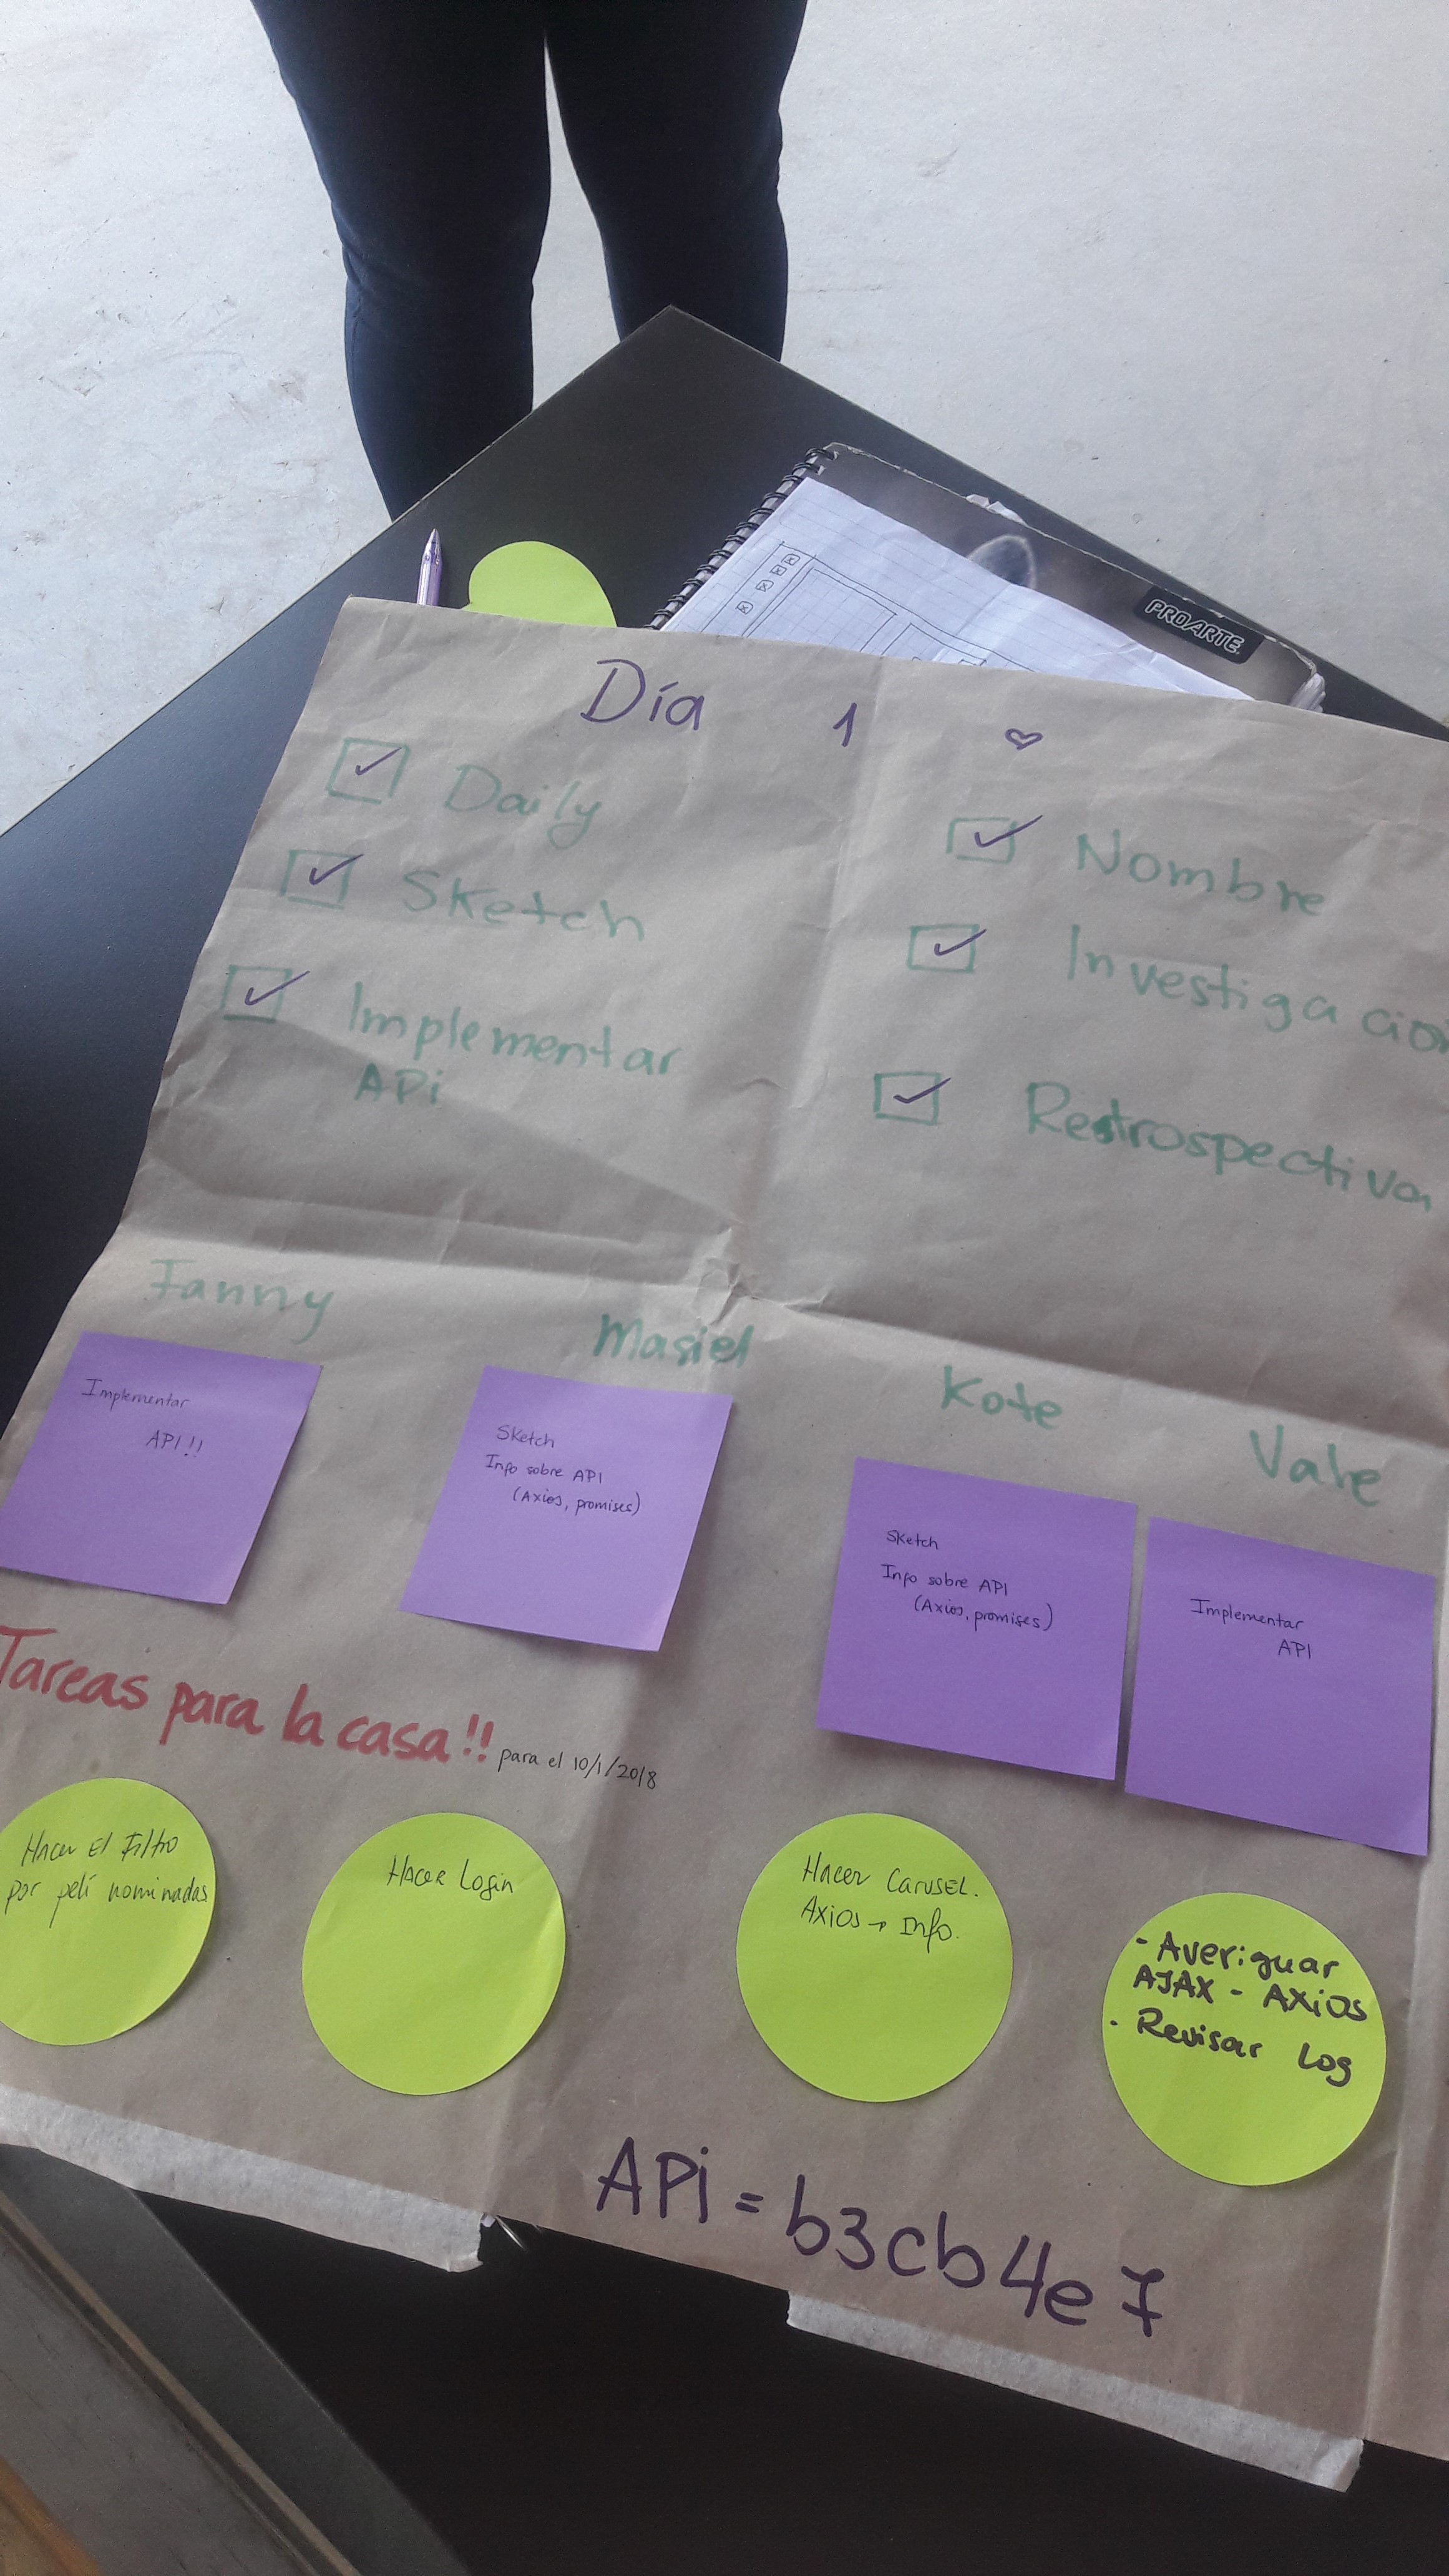 PROARTE
Día 1
Daily
Sketch
Implementar
APi
Nombre
Investigacion
Restrospectiva
Fanny
Masiel
Kote
Vale
Implementar
API!!
Sketch
Info sobre API
(Axios, promises)
Sketch
Info sobre API
(Axios, promises)
Implementar
API
Tareas para la casa!! para el 10/1/2018
Hacer El Filtro
por peli nominadas
Hacer Login
Hacer Carusel.
Axios → Info.
- Averiguar
AJAX - AXiOS
· Revisar Log
APi = b3cb4e7